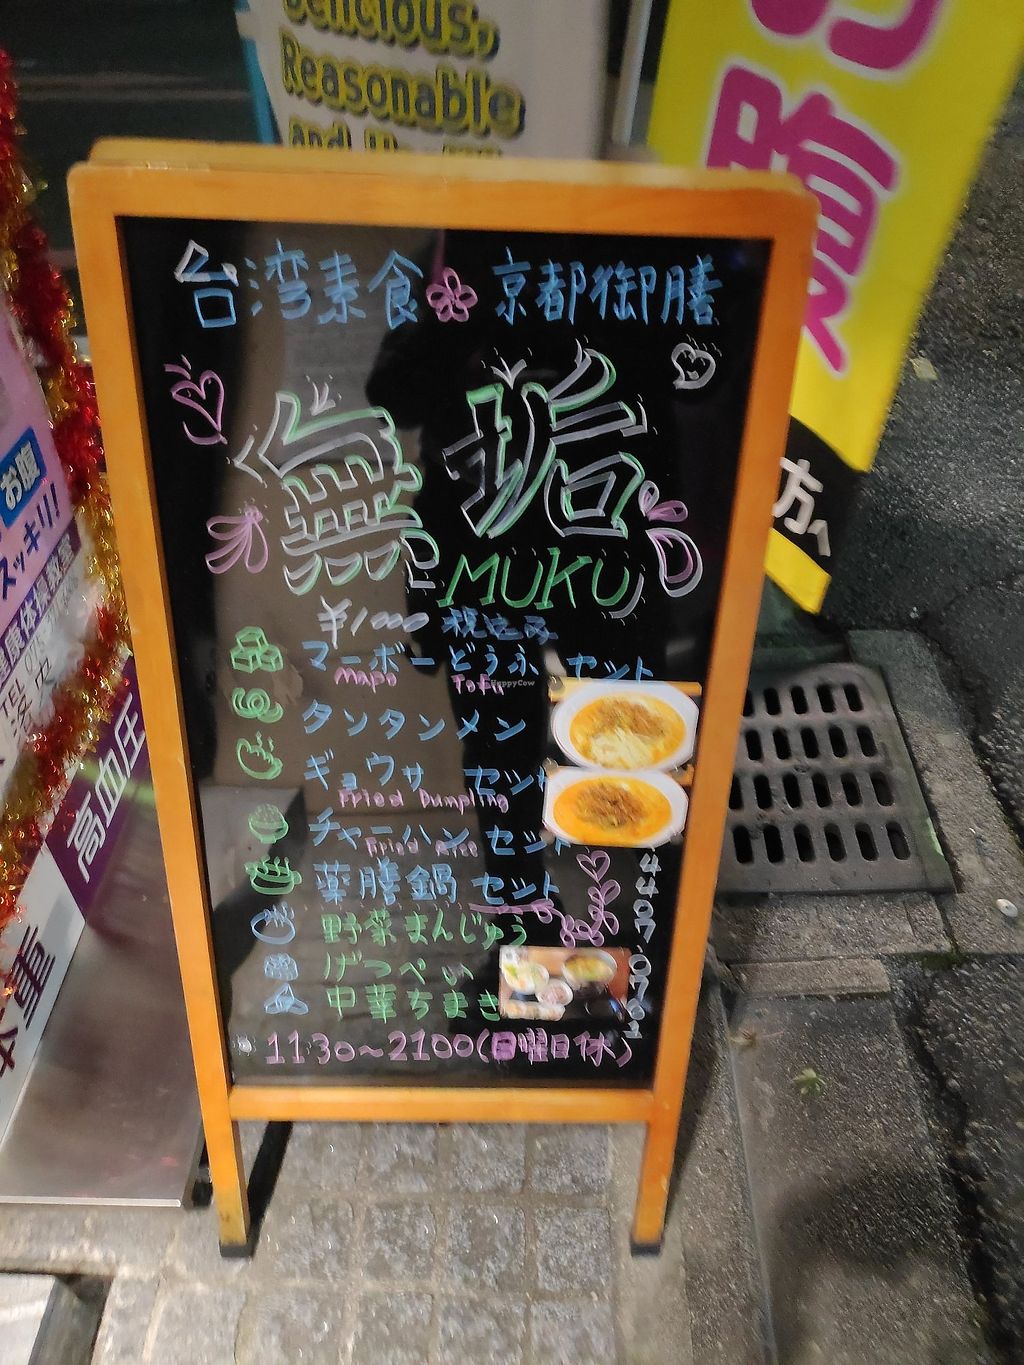 Delicious,
Reasonable
and
台湾素食 京都御膳
無垢
MUKU
¥1000 税込み
マーボーどうふ セット
Mapo Tofu
HappyCow
タンタンメン
ギョウザ セット
Fried Dumpling
チャーハン セット
Fried Rice
薬膳鍋 セット
野菜まんじゅう
げっぺい
中華ちまき
1130~2100(日曜日休)
お腹
スッキリ!
TEL
高血圧
重
方へ